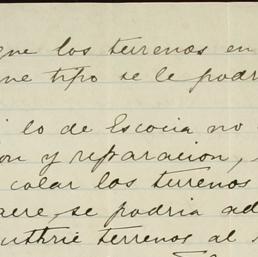 que los terrenos en
que tipo se le podr
lo de Escocia no
on y reparacion,
colar los terenos
aere, se podria ad
uthrie terrenos al